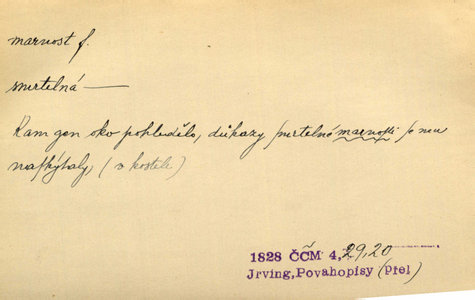 marnost f.
smrtelná —
Kam gen oko pohledělo, důkazy smrtelné marnosti se mu
naskýtaly, (v kostele)
1828 ČČM 4, 29, 20
Jrving, Povahopisy (Přel)